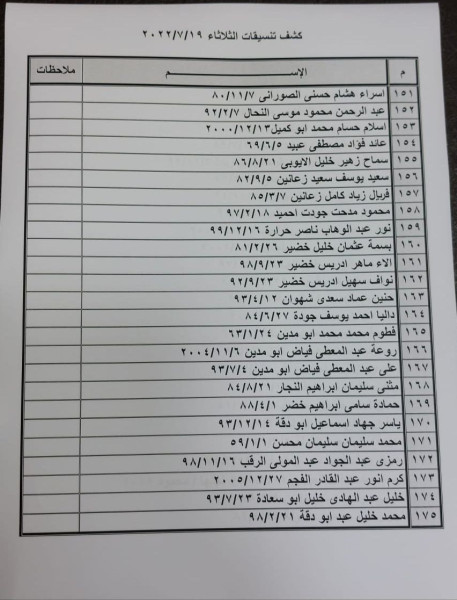 كشف تنسيقات الثلاثاء ٢٠٢٢/٧/١٩
م الإســـم ملاحظات
١٥١ اسراء هشام حسنى الصورانى ٨٠/١١/٧
١٥٢ عبد الرحمن محمود موسى النحال ٩٢/٢/٧
١٥٣ اسلام حسام محمد ابو كميل ٢٠٠٠/١٢/١٣
١٥٤ عائد فؤاد مصطفى عبيد ٦٩/٦/٥
١٥٥ سماح زهير خليل الايوبى ٨٦/٨/٢١
١٥٦ سعيد يوسف سعيد زعانين ٨٢/٩/٥
١٥٧ فريال زياد كامل زعانين ٨٥/٣/٧
١٥٨ محمود مدحت جودت احميد ٩٧/٢/١٨
١٥٩ نور عبد الوهاب ناصر حرارة ٩٩/١٢/١٦
١٦٠ بسمة عثمان خليل خضير ٨١/٢/٢٦
١٦١ الاء ماهر ادريس خضير ٩٨/٩/٢٣
١٦٢ نواف سهيل ادريس خضير ٩٢/٩/٢٣
١٦٣ حنين عماد سعدى شهوان ٩٣/٤/١٢
١٦٤ داليا احمد يوسف جودة ٨٤/٦/٢٧
١٦٥ فطوم محمد محمد ابو مدين ٦٣/١/٢٤
١٦٦ روعة عبد المعطى فياض ابو مدين ٢٠٠٤/١١/٦
١٦٧ على عبد المعطى فياض ابو مدين ٩٣/٧/٤
١٦٨ مثنى سليمان ابراهيم النجار ٨٤/٨/٢١
١٦٩ حمادة سامى ابراهيم خضر ٨٨/٤/١
١٧٠ ياسر جهاد اسماعيل ابو دقة ٩٣/١٢/١٤
١٧١ محمد سليمان سليمان محسن ٥٩/١/١
١٧٢ رمزى عبد الجواد عبد المولى الرقب ٩٨/١١/١٦
١٧٣ كرم انور عبد القادر الفجم ٢٠٠٥/١٢/٢٧
١٧٤ خليل عبد الهادى خليل ابو سعادة ٩٣/٧/٢٣
١٧٥ محمد خليل عبد ابو دقة ٩٨/٢/٢١